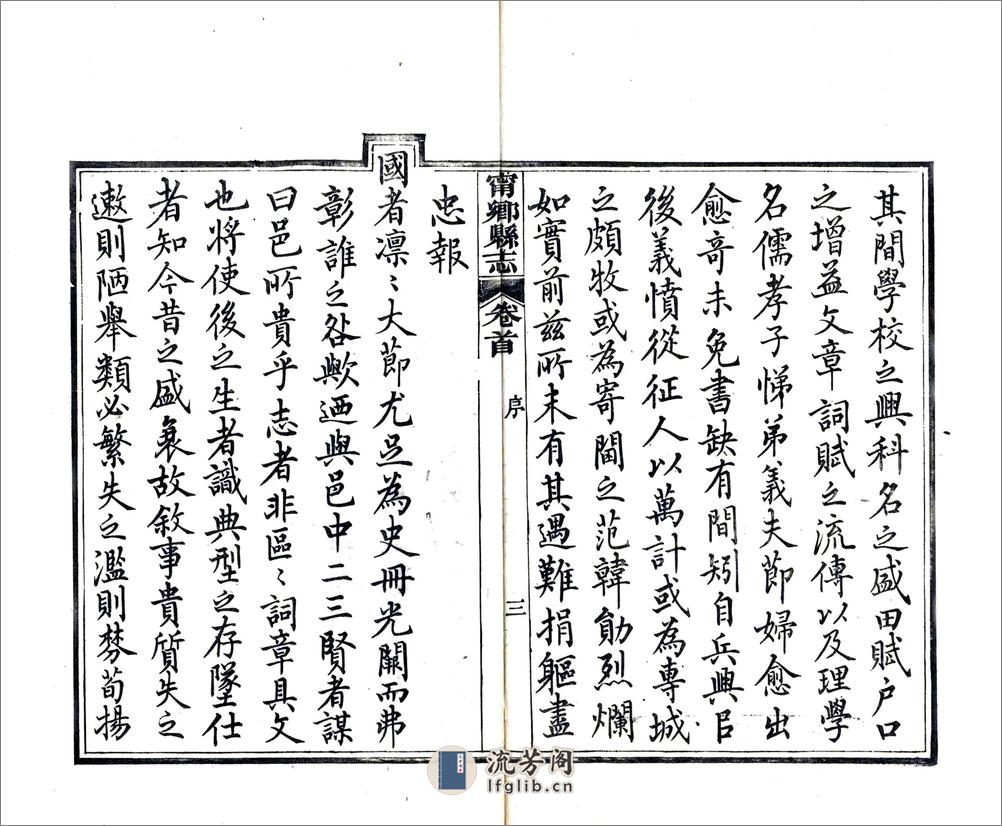 其間學校之興科名之盛田賦戶口
之增益文章詞賦之流傳以及理學
名儒孝子悌弟義夫節婦愈出
愈奇未免書缺有間矧自兵興㠯
後義憤從征人以萬計或為專城
之頗牧或為寄閫之范韓勛烈爛
如實前兹所未有其遇難捐軀盡
甯鄉縣志 卷首 序 三
忠報
國者凛〻大節尤足為史冊光闕而弗
彰誰之咎歟迺與邑中二三賢者謀
曰邑所貴乎志者非區〻詞章具文
也將使後之生者識典型之存墜仕
者知今昔之盛衰故敘事貴質失之
遬則陋舉類必繁失之濫則棼苟揚
流芳阁
lfglib.cn